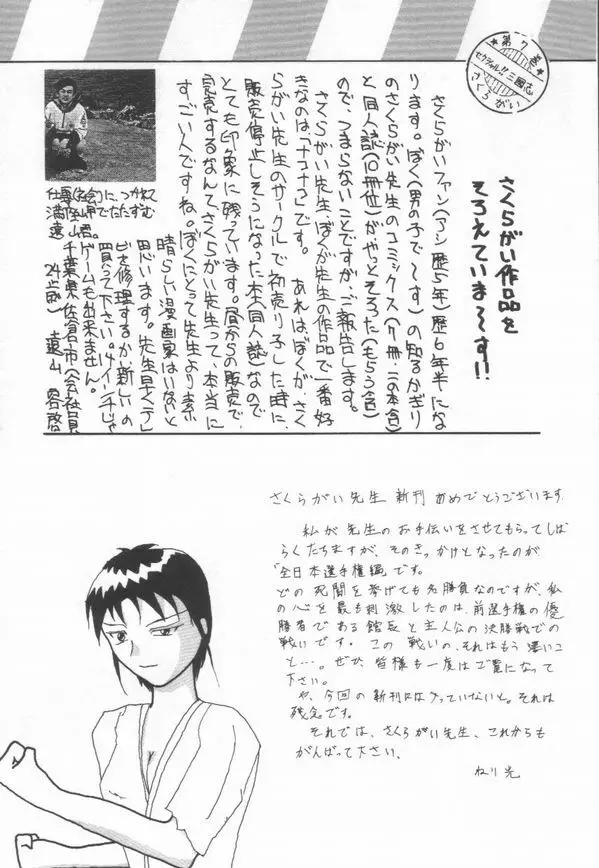 第7巻
セクシャル!!三國志
さくらがい
さくらがい作品を
そろえていま〜す!!
さくらがいファン(アシ歴5年)歴6年半にな
ります。ぼく(男の子で〜す)の知るかぎり
のさくらがい先生のコミックス(八冊・二の本含)
と同人誌(10冊位)がやっとそろた(もらう含)
ので、つまらないことですが、ご報告します。
さくらがい先生、ぼくが先生の作品で一番好
きなのは、「ナコナコ」です。あれはぼくが、さく
らがい先生のサークルで初売り子した時に、
販売停止しそうになった本(同人誌)なので
とても印象に残っています。昼からの販売で、
完売するなんて、さくらがい先生って、本当に
すごい人ですね。ぼくにとって先生より素
晴らしい漫画家はいないと
思います。先生早くテレ
ビを修理するかい新しいの
買って下さい。4インチじゃ
ゲームも出来ません。
千葉県佐倉市(会社員
24歳) 遠山
仕事(会社)に、つかれて
満開の下でたたずむ
遠山君。
さくらがい先生 新刊 おめでとうございます
私が先生のお手伝いをさせてもらってしば
らくたちますが、そのきっかけとなったのが
「全日本選手権編」です。
どの死闘を挙げても名勝負なのですが、私
の心を最も刺激したのは、前選手権の優
勝者である館長と主人公の決勝戦での
戦いです。この戦いの、それはもう凄いこ
と…。ぜひ皆様も一度はご覧になって
下さい。
や、今回の新刊には入っていないと。それは
残念です。
それでは、さくらがい先生、これからも
がんばって下さい、
ねり光